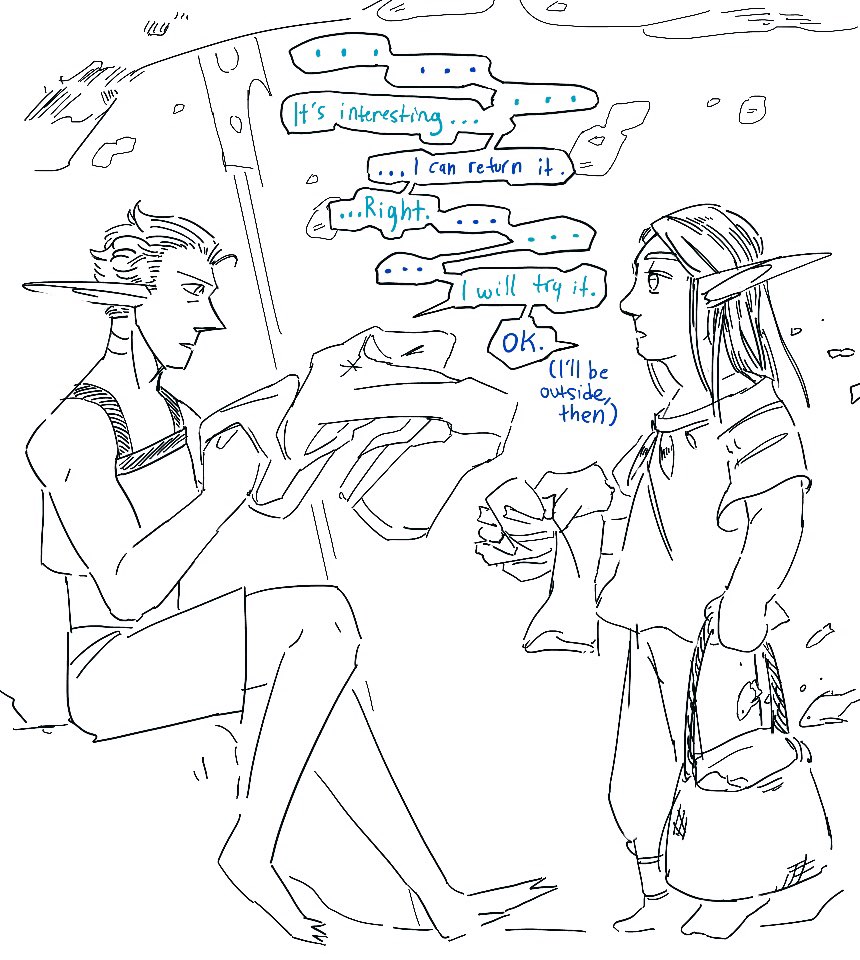 ...
...
...
It's interesting...
...I can return it.
...Right.
...
...
...
I will try it.
OK.
(I'll be
outside,
then)